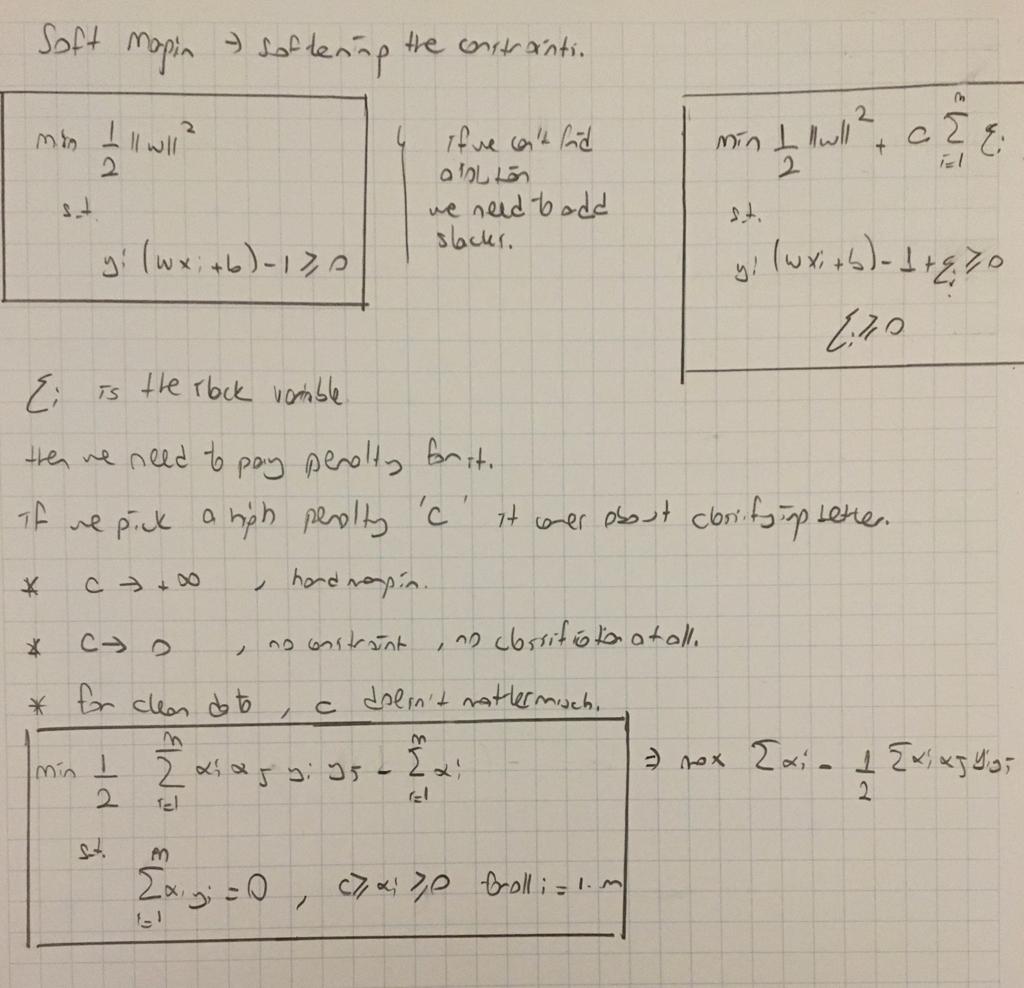 Soft Margin → softening the constraints.
min 1/2 ||w||²
s.t.
yi (wxi + b) - 1 ≥ 0
if we can't find
a solution
we need to add
slacks.
min 1/2 ||w||² + C Σ_{i=1}^{m} ξi
s.t.
yi (wxi + b) - 1 + ξi ≥ 0
ξi ≥ 0
ξi is the slack variable
then we need to pay penalty for it.
if we pick a high penalty 'C' it cares about classifying better.
* C → +∞ , hard margin.
* C → 0 , no constraint, no classification at all.
* for clean data , C doesn't matter much.
min 1/2 Σ_{i=1}^{m} αi αj yi yj - Σ_{i=1}^{m} αi
s.t.
Σ_{i=1}^{m} αi yi = 0 , C ≥ αi ≥ 0 for all i = 1..m
⇒ max Σαi - 1/2 Σαi αj yi yj